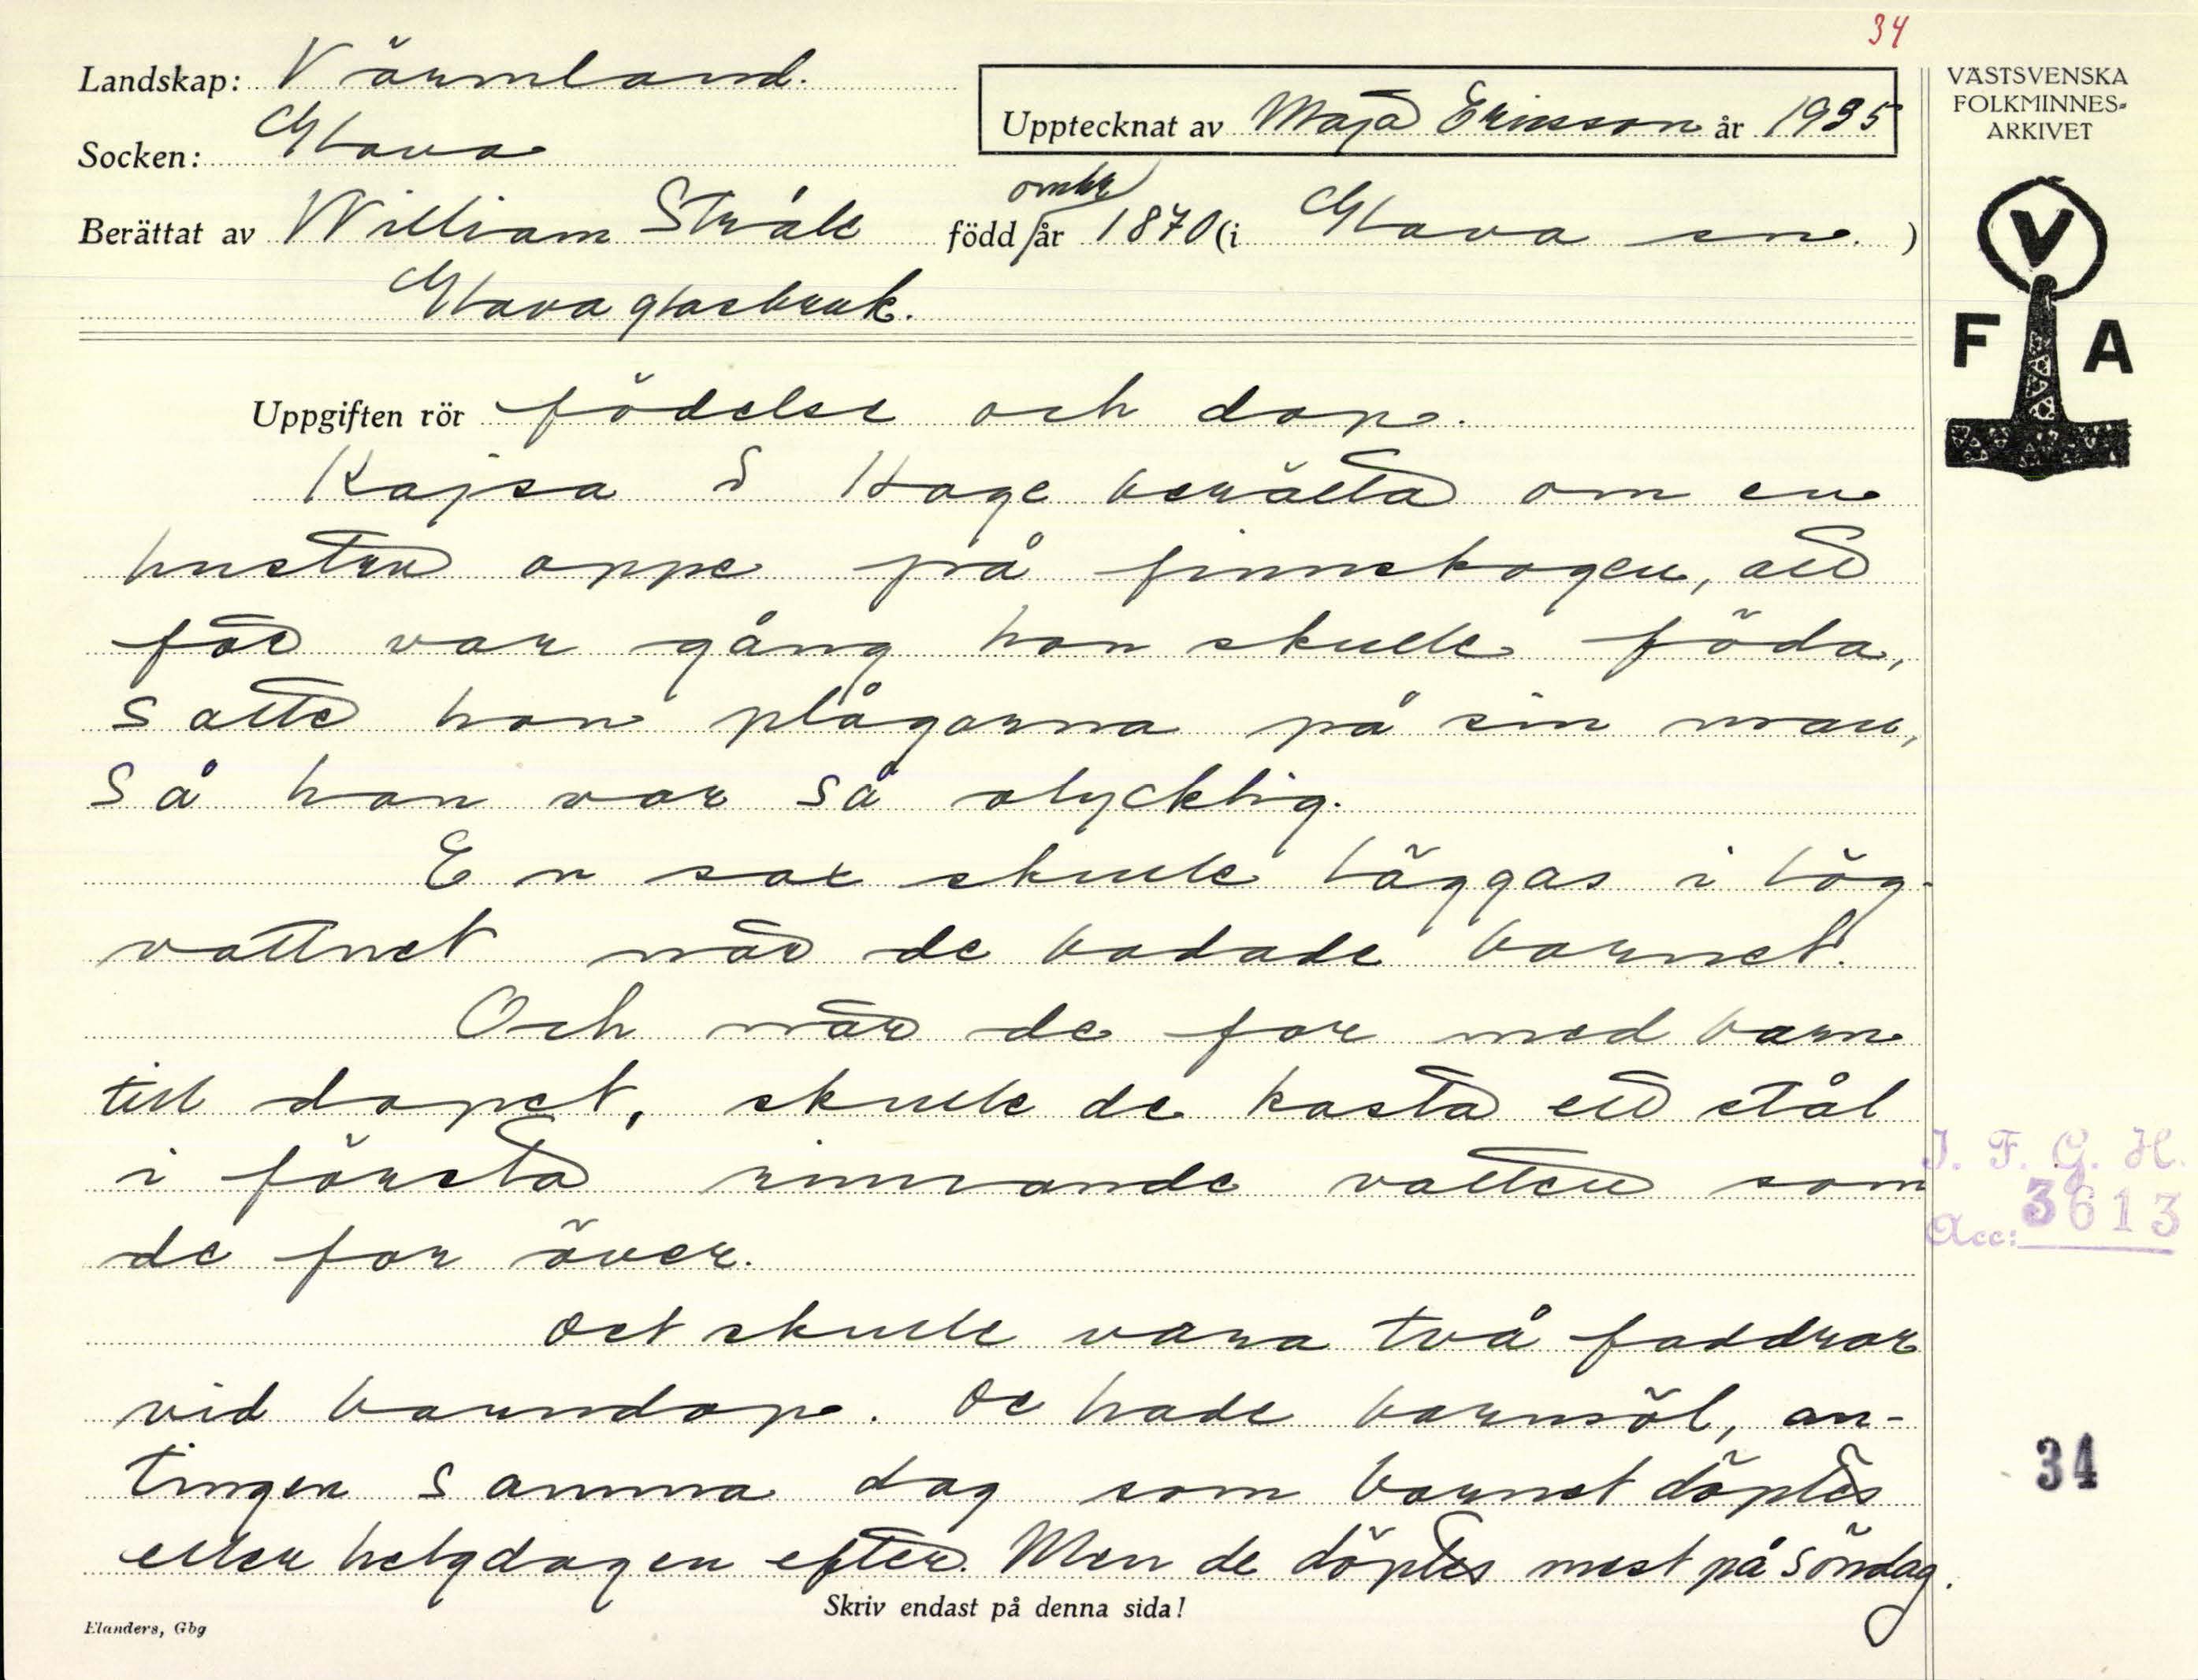 34
Landskap: Värmland.
Socken: Glava
Upptecknat av Maja Ericsson år 1935
VÄSTSVENSKA
FOLKMINNES-
ARKIVET
Berättat av William Stråle född omkr år 1870 (i Glava sn. )
Glava glasbruk.
V
F A
Uppgiften rör födelse och dop.
Kajsa i Hage berätta om en
hustru oppe på finnskogen, att
för var gång hon skulle föda,
satte hon plågorna på sin man,
så han var så olycklig.
En sax skulle läggas i lög-
vattnet när de badade barnet.
Och när de for med barn
till dopet, skulle de kasta ett stål
i första rinnande vatten som
de for över.
Det skulle vara två faddrar
vid barndop. De hade barnsöl, an-
tingen samma dag som barnet döptes
eller helgdagen efter. Men de döptes mest på söndag.
I. F. G. H.
Acc: 3613
34
Skriv endast på denna sida!
Elanders, Gbg